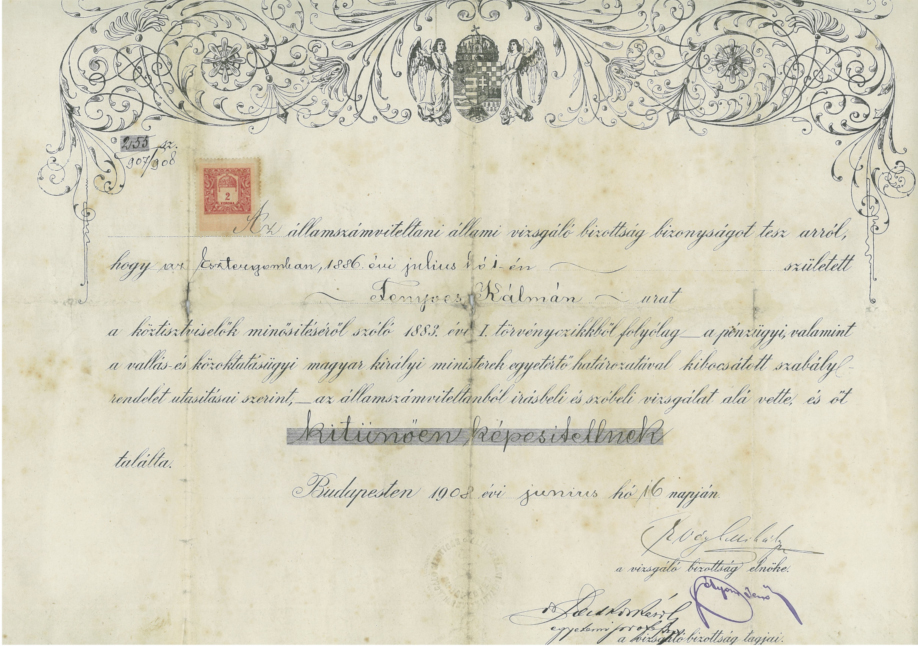 255 sz.
907/908
2
Az államszámviteltani állami vizsgáló bizottság bizonyságot tesz arról,
hogy az Esztergomban, 1886. évi julius hó 1-én született
Fenyves Kálmán urat
a köztisztviselők minősítéséről szóló 1883. évi I. törvényczikkből folyólag – a pénzügyi, valamint
a vallás- és közoktatásügyi magyar királyi ministerek egyetértő határozatával kibocsátott szabály-
rendelet utasításai szerint, – az államszámviteltanból irásbeli és szóbeli vizsgálat alá vette, és őt
kitünően képesitettnek
találta.
Budapesten 1908 évi junius hó 16 napján
a vizsgáló bizottság elnöke.
egyetemi
a vizsgáló bizottság tagjai.